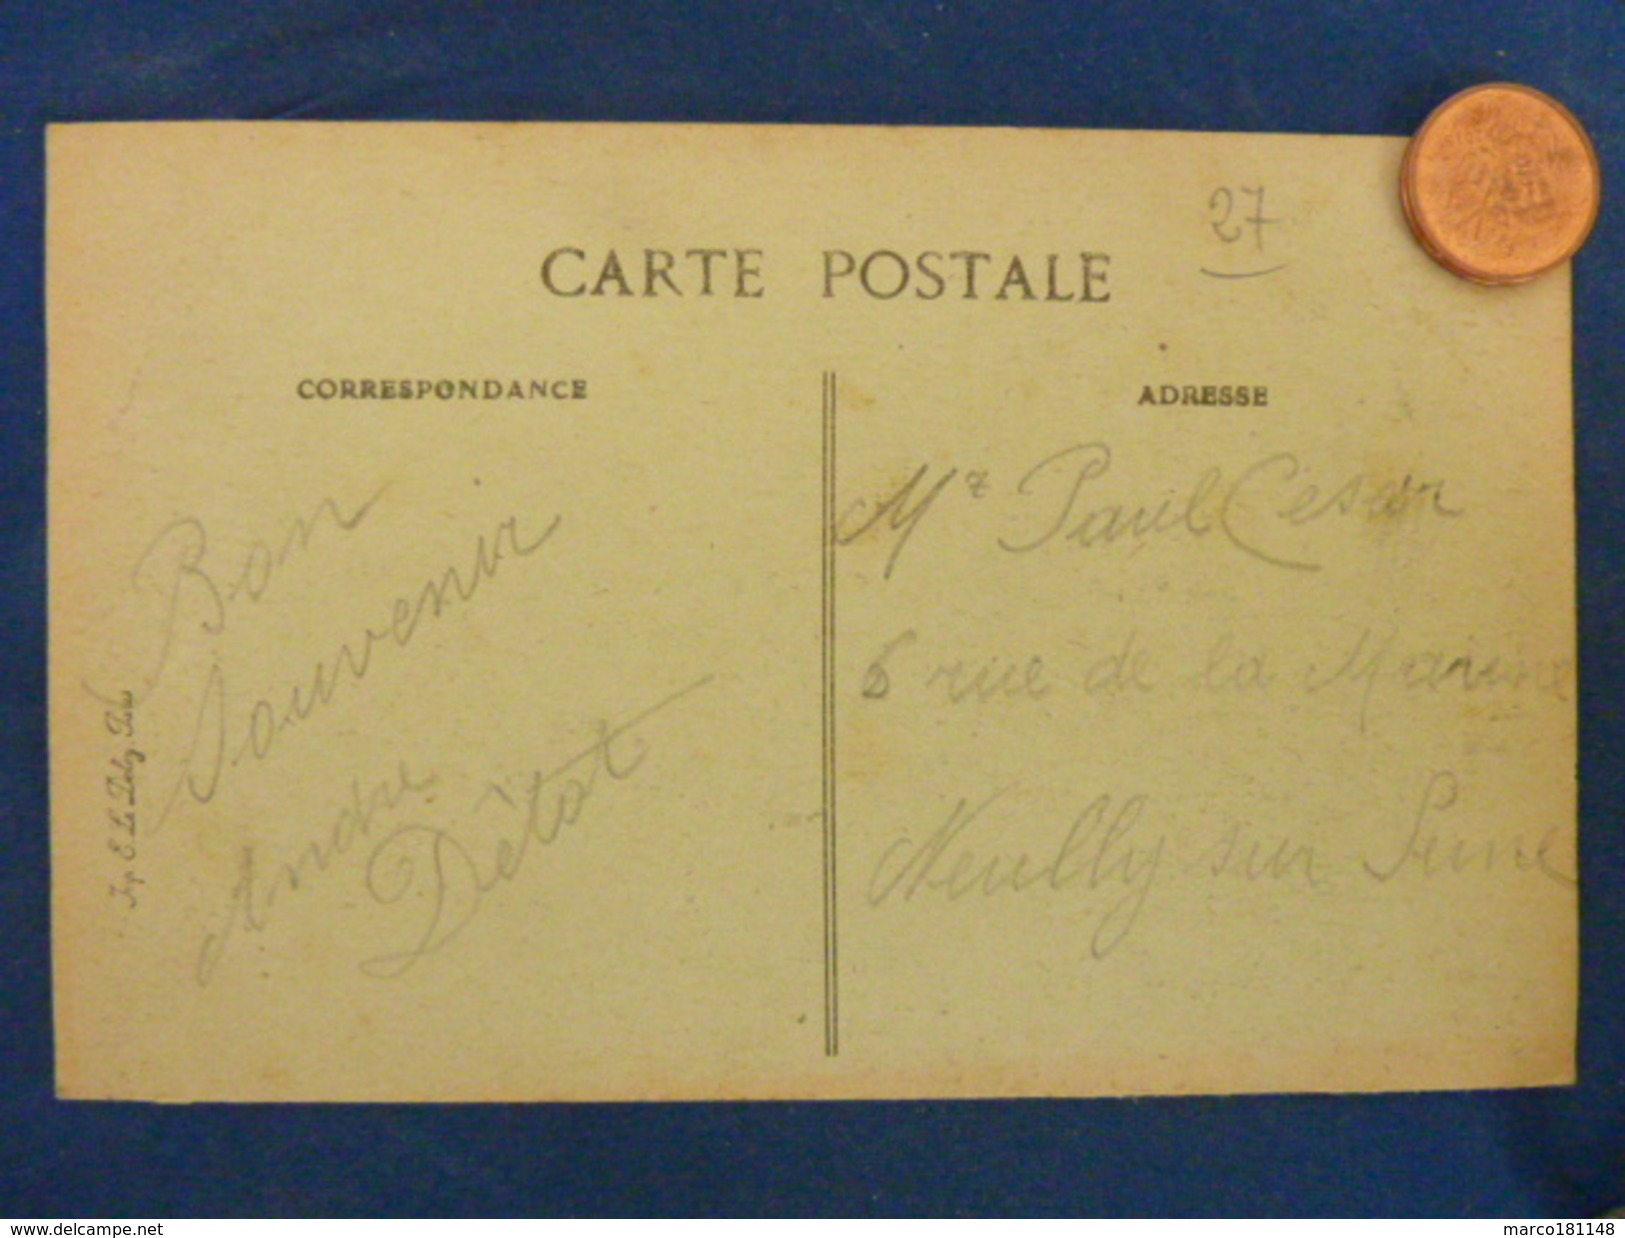 27
CARTE POSTALE
CORRESPONDANCE
ADRESSE
Bon
Souvenir
André
Détot
Mr Paul Cesar
6 rue de la Marine
Neuilly sur Seine
Imp. E. Le Deley Paris
www.delcampe.net
marco181148